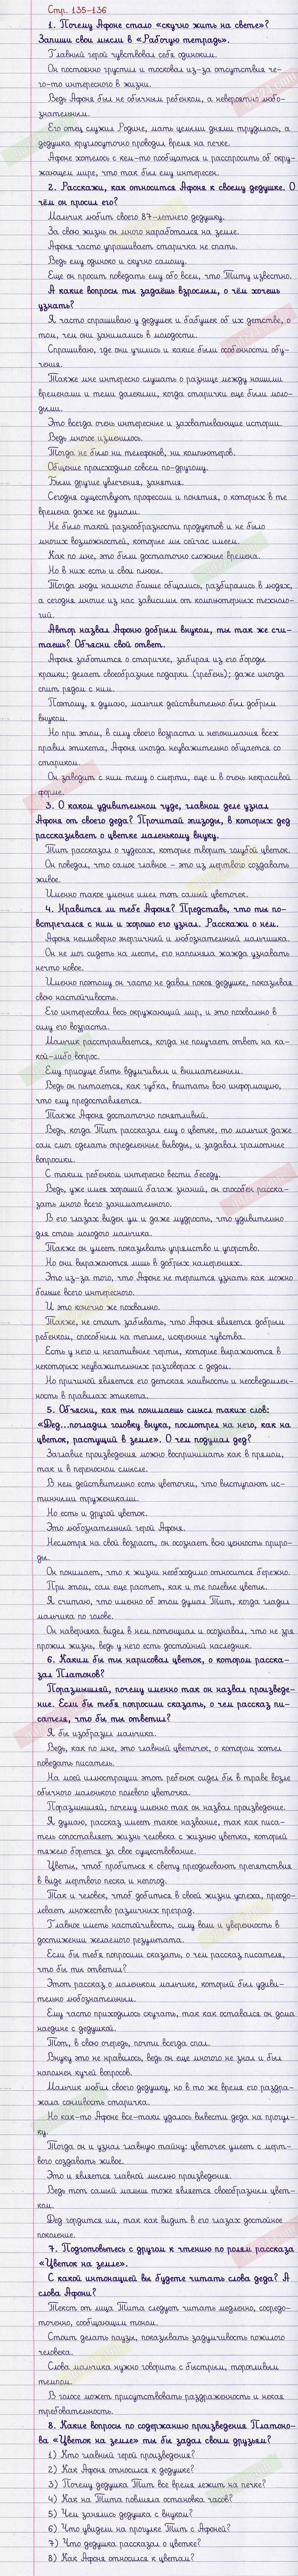 Стр. 135-136
1. Почему Афоне стало «скучно жить на свете»?
Запиши свои мысли в «Рабочую тетрадь».
Главный герой чувствовал себя одиноким.
Он постоянно грустил и тосковал из-за отсутствия че-
го-то интересного в жизни.
Ведь Афоня был не обычным ребенком, а невероятно любо-
знательным.
Его отец служил Родине, мать целыми днями трудилась, а
дедушка круглосуточно проводил время на печке.
Афоне хотелось с кем-то пообщаться и расспросить об окру-
жающем мире, что так был ему интересен.
2. Расскажи, как относится Афоня к своему дедушке. О
чём он просил его?
Мальчик любит своего 87-летнего дедушку.
За свою жизнь он много наработался на земле.
Афоня часто упрашивает старичка не спать.
Ведь ему одиноко и скучно самому.
Еще он просит поведать ему обо всем, что Титу известно.
А какие вопросы ты задаёшь взрослым, о чём хочешь
узнать?
Я часто спрашиваю у дедушек и бабушек об их детстве, о
том, чем они занимались в молодости.
Спрашиваю, где они учились и какие были особенности обу-
чения.
Также мне интересно слушать о разнице между нашими
временами и теми далекими, когда старички еще были моло-
дыми.
Это всегда очень интересные и захватывающие истории.
Ведь многое изменилось.
Тогда не было ни телефонов, ни компьютеров.
Общение происходило совсем по-другому.
Были другие увлечения, занятия.
Сегодня существуют профессии и понятия, о которых в те
времена даже не думали.
Не было такой разнообразности продуктов и не было
многих возможностей, которые мы сейчас имеем.
Как по мне, это были достаточно сложные времена.
Но в них есть и свои плюсы.
Тогда люди намного больше общались, разбирались в людях,
а сегодня многие из нас зависимы от компьютерных техноло-
гий.
Автор назвал Афоню добрым внуком, ты так же счи-
таешь? Объясни свой ответ.
Афоня заботится о старичке, забирая из его бороды
крошки; делает своеобразные подарки (гребень); даже иногда
спит рядом с ним.
Поэтому, я думаю, мальчик действительно был добрым
внуком.
Но при этом, в силу своего возраста и непонимания всех
правил этикета, Афоня иногда неуважительно общается со
стариком.
Он заводит с ним тему о смерти, еще и в очень некрасивой
форме.
3. О каком удивительном чуде, главном деле узнал
Афоня от своего деда? Прочитай эпизоды, в которых дед
рассказывает о цветке маленькому внуку.
Тит рассказал о чудесах, которые творит голубой цветок.
Он поведал, что самое главное – это из мертвого создавать
живое.
Именно такое умение имел тот самый цветочек.
4. Нравится ли тебе Афоня? Представь, что ты по-
встречался с ним и хорошо его узнал. Расскажи о нем.
Афоня неимоверно энергичный и любознательный мальчишка.
Он не мог сидеть на месте, его наполняла жажда узнавать
нечто новое.
Именно поэтому он часто не давал покоя дедушке, показывая
свою настойчивость.
Его интересовал весь окружающий мир, и это похвально в
силу его возраста.
Мальчик расстраивается, когда не получает ответ на ка-
кой-либо вопрос.
Ему присуще быть вдумчивым и внимательным.
Ведь он пытается, как губка, впитать всю информацию,
что ему предоставляется.
Также Афоня достаточно понятливый.
Ведь, когда Тит рассказал ему о цветке, то мальчик даже
сам смог сделать определенные выводы, и задавал грамотные
вопросики.
С таким ребенком интересно вести беседу.
Ведь, уже имея хороший багаж знаний, он способен расска-
зать много всего занимательного.
В его глазах виден ум и даже мудрость, что удивительно
для столь молодого мальчика.
Также он умеет показывать упрямство и упорство.
Но они выражаются лишь в добрых намерениях.
Это из-за того, что Афоне не терпится узнать как можно
больше всего интересного.
И это конечно же похвально.
Также, не стоит забывать, что Афоня является добрым
ребенком, способным на теплые, искренние чувства.
Есть у него и негативные черты, которые выражаются в
некоторых неуважительных разговорах с дедом.
Но причиной является его детская наивность и неосведомлен-
ность в правилах этикета.
5. Объясни, как ты понимаешь смысл таких слов:
«Дед...погладил головку внука, посмотрел на него, как на
цветок, растущий в земле». О чем подумал дед?
Заглавие произведения можно воспринимать как в прямом,
так и в переносном смысле.
В нем действительно есть цветочки, что выступают ис-
тинными тружениками.
Но есть и другой цветок.
Это любознательный герой Афоня.
Несмотря на свой возраст, он осознает всю ценность приро-
ды.
Он понимает, что к жизни необходимо относится бережно.
При этом, сам еще растет, как и те полевые цветы.
Я считаю, что именно об этом думал Тит, когда гладил
мальчика по голове.
Он наверняка видел в нем потенциал и осознавал, что не зря
прожил жизнь, ведь у него есть достойный наследник.
6. Каким бы ты нарисовал цветок, о котором расска-
зал Платонов?
Поразмышляй, почему именно так он назвал произведе-
ние. Если бы тебя попросили сказать, о чем рассказ пи-
сателя, что бы ты ответил?
Я бы изобразил мальчика.
Ведь, как по мне, это главный цветочек, о котором хотел
поведать писатель.
На моей иллюстрации этот ребенок сидел бы в траве возле
обычного маленького полевого цветочка.
Поразмышляй, почему именно так он назвал произведение.
Я думаю, рассказ имеет такое название, так как писа-
тель сопоставляет жизнь человека с жизнью цветка, который
тяжело борется за свое существование.
Цветы, чтоб пробиться к свету преодолевают препятствия
в виде мертвого песка и непогод.
Так и человек, чтоб добиться в своей жизни успеха, преодо-
левает множество различных преград.
Главное иметь настойчивость, силу воли и уверенность в
достижении желаемого результата.
Если бы тебя попросили сказать, о чем рассказ писателя,
что бы ты ответил?
Этот рассказ о маленьком мальчике, который был удиви-
тельно любознательным.
Ему часто приходилось скучать, так как оставался он дома
наедине с дедушкой.
Тот, в свою очередь, почти всегда спал.
Внуку это не нравилось, ведь он еще многого не знал и был
наполнен кучей вопросов.
Мальчик любил своего дедушку, но в то же время его раздра-
жала сонливость старичка.
Но как-то Афоне все-таки удалось вывести деда на прогул-
ку.
Тогда он и узнал главную тайну: цветочек умеет с мерт-
вого создавать живое.
Это и является главной мыслю произведения.
Ведь тот самый малыш тоже является своеобразным цвет-
ком.
Дед гордится им, так как видит в его глазах достойное
поколение.
7. Подготовьтесь с другом к чтению по ролям рассказа
«Цветок на земле».
С какой интонацией вы будете читать слова деда? А
слова Афони?
Текст от лица Тита следует читать медленно, сосредо-
точенно, сообщающим тоном.
Стоит делать паузы, показывать задумчивость пожилого
человека.
Слова мальчика нужно говорить с быстрым, торопливым
темпом.
В голосе может присутствовать раздраженность и некая
требовательность.
8. Какие вопросы по содержанию произведения Платоно-
ва «Цветок на земле» ты бы задал своим друзьям?
1) Кто главный герой произведения?
2) Как Афоня относился к дедушке?
3) Почему дедушка Тит все время лежит на печке?
4) Как на Тита повлияла остановка часов?
5) Чем занялись дедушка с внуком?
6) Что увидели на прогулке Тит с Афоней?
7) Что дедушка рассказал о цветке?
8) Как Афоня относился к цветам?